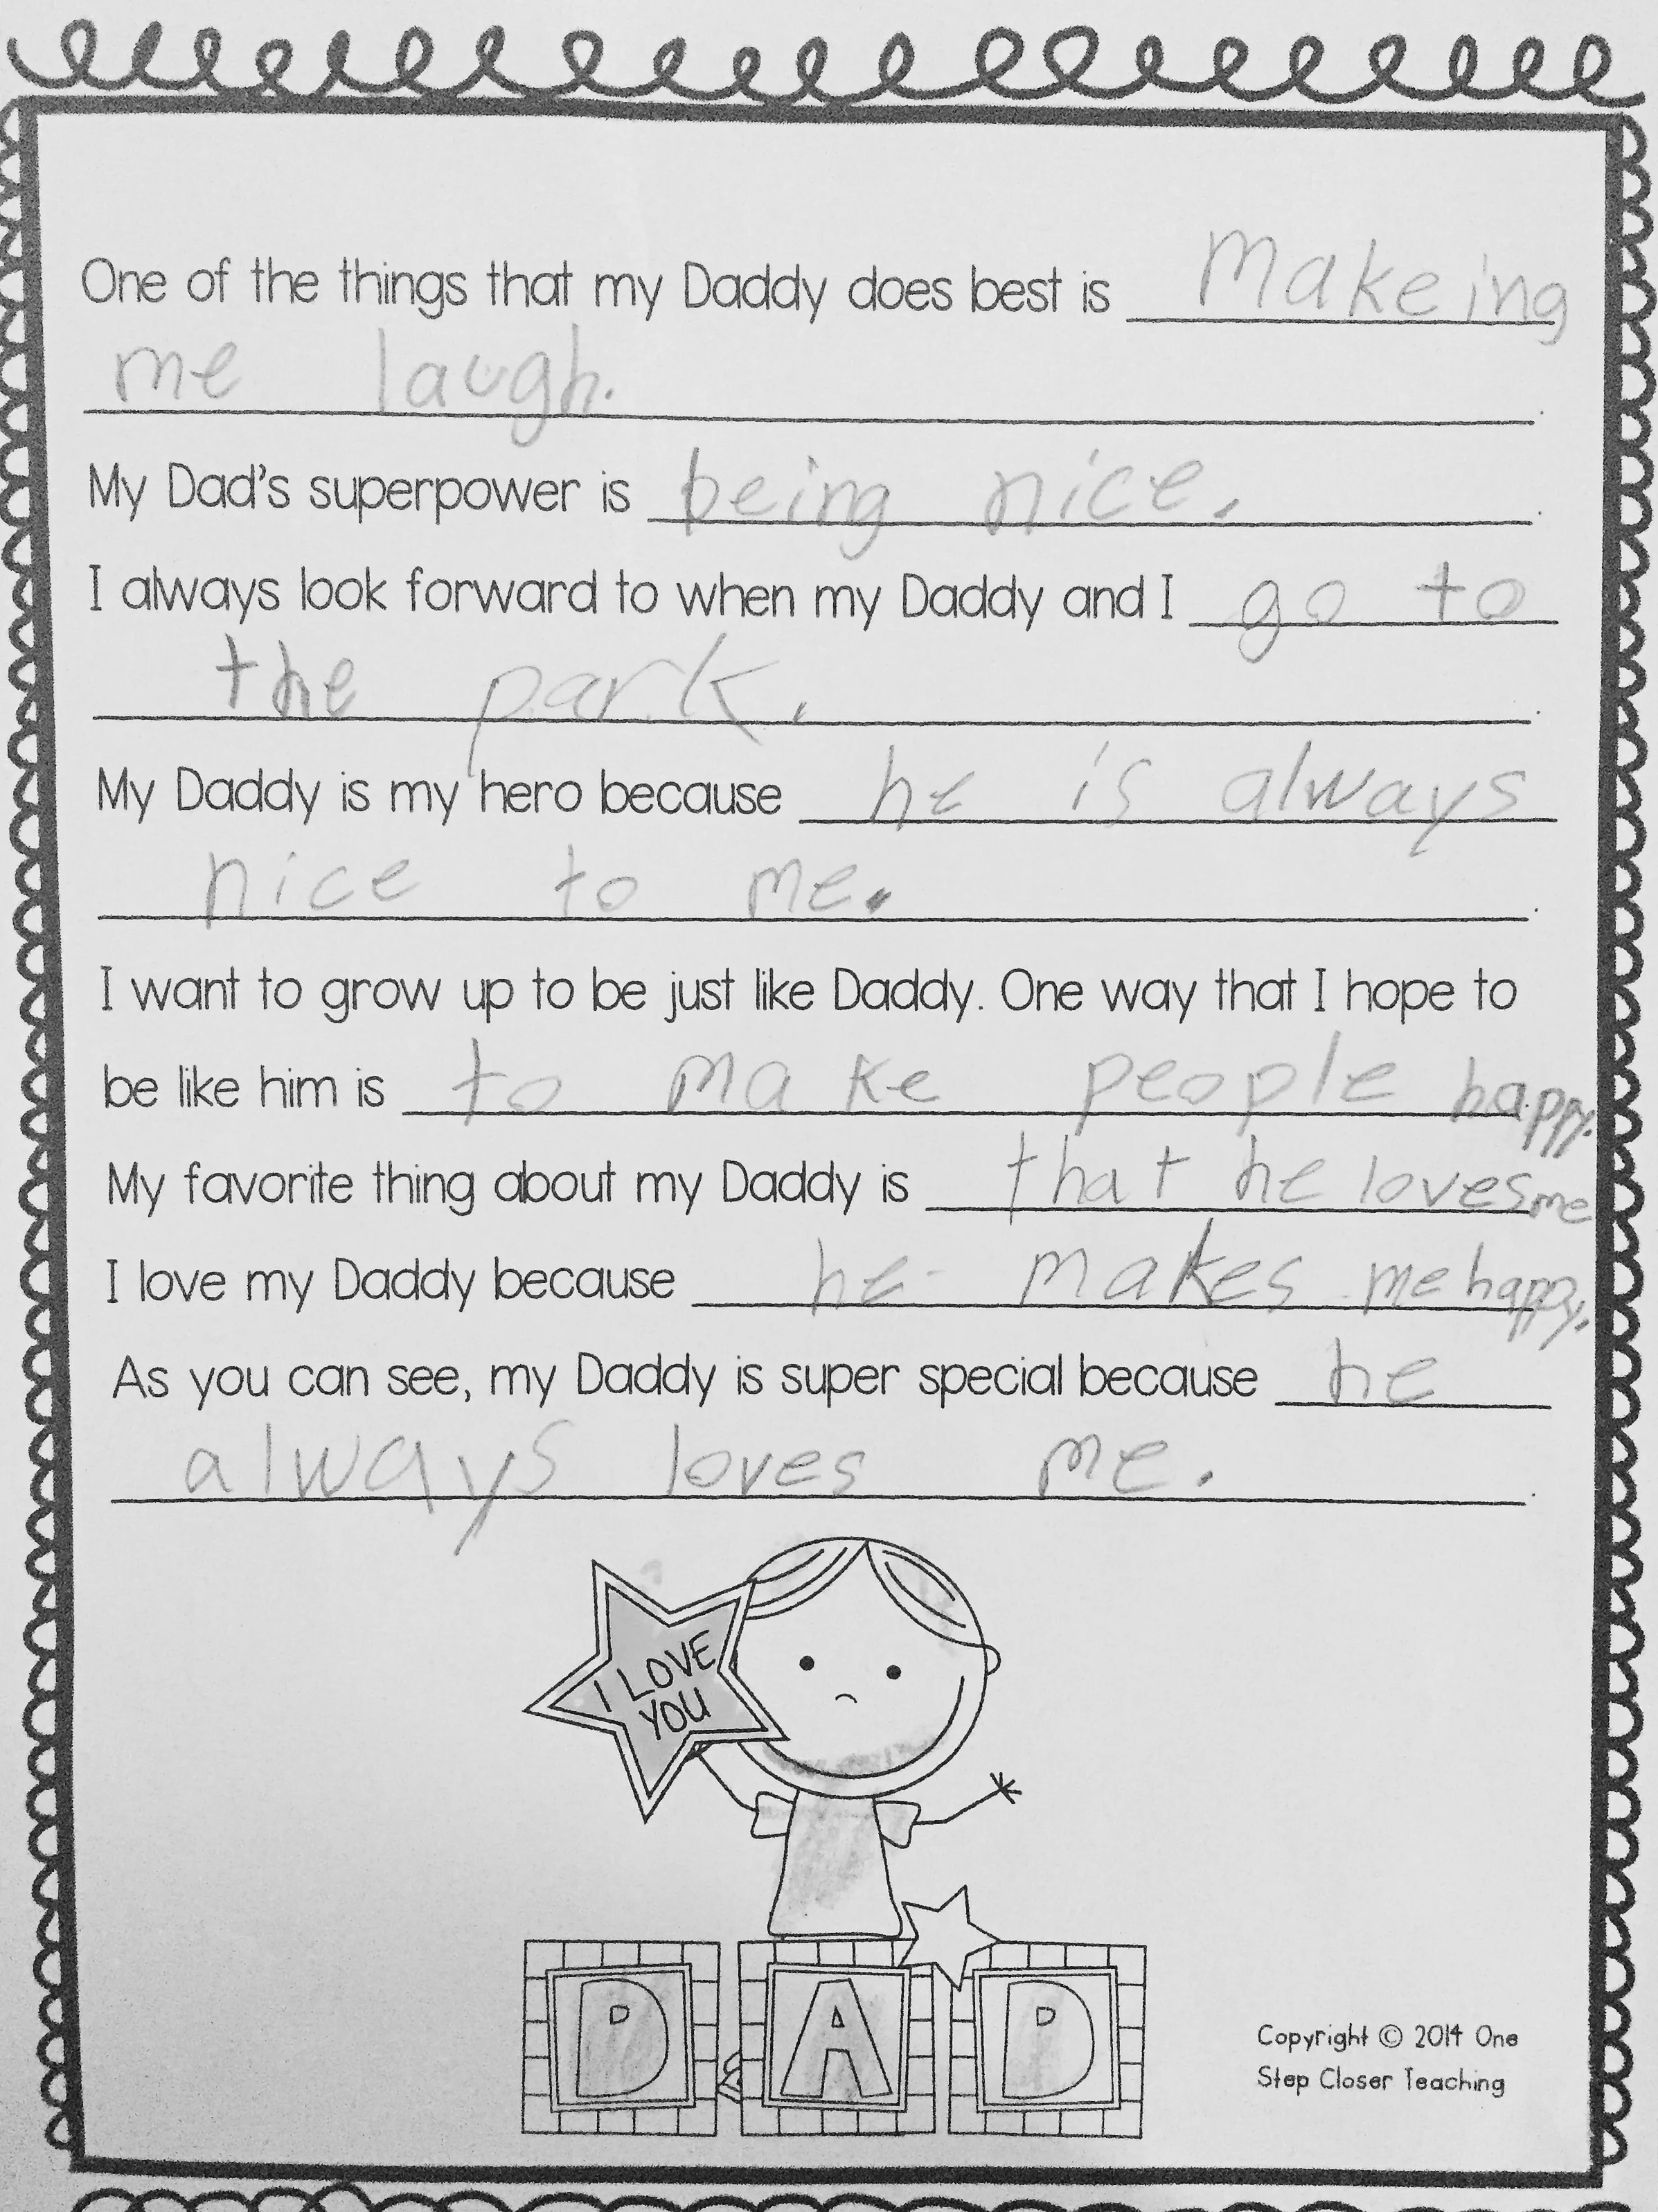 One of the things that my Daddy does best is Makeing
me laugh.
My Dad's superpower is being nice.
I always look forward to when my Daddy and I go to
the park.
My Daddy is my hero because he is always
nice to me.
I want to grow up to be just like Daddy. One way that I hope to
be like him is to make people happy.
My favorite thing about my Daddy is that he loves me
I love my Daddy because he makes me happy.
As you can see, my Daddy is super special because he
always loves me.
I LOVE
YOU
DAD
Copyright © 2014 One
Step Closer Teaching